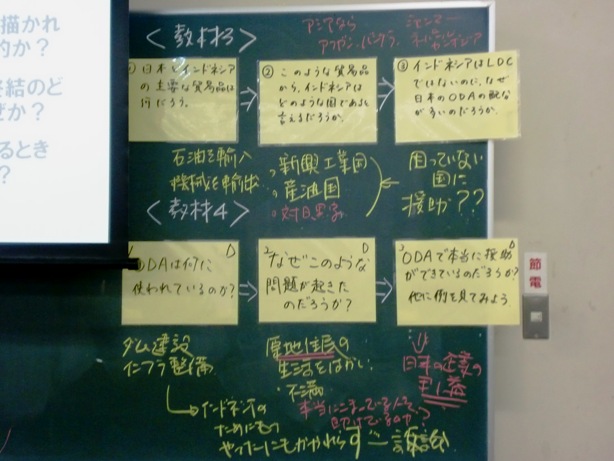 描かれ
的か?
終結のど
ぜか?
るとき
?
<教材3>
アジアなら
アフガン、バングラ、
ミャンマー
①日本とインドネシア
の主要な貿易品は
何だろう。
②このような貿易品
から、インドネシアは
どのような国であると
言えるだろうか。
③インドネシアはLDC
ではないのに、なぜ
日本のODAの配分
が多いのだろうか。
石油を輸入
機械を輸出
・新興工業国
・産油国
・対日黒字
困っていない
国に
援助??
<教材4>
①ODAは何に
使われているのか?
②なぜこのような
問題が起きた
のだろうか?
③ODAで本当に援助
ができているのだろうか?
他に例を見てみよう
ダム建設
インフラ整備
インドネシアの
ためにもっ
やったにもかかわらず
現地住民の
生活をはかい
・不満
本当にこまっている人を
助けているのか?
日本の企業の
節電